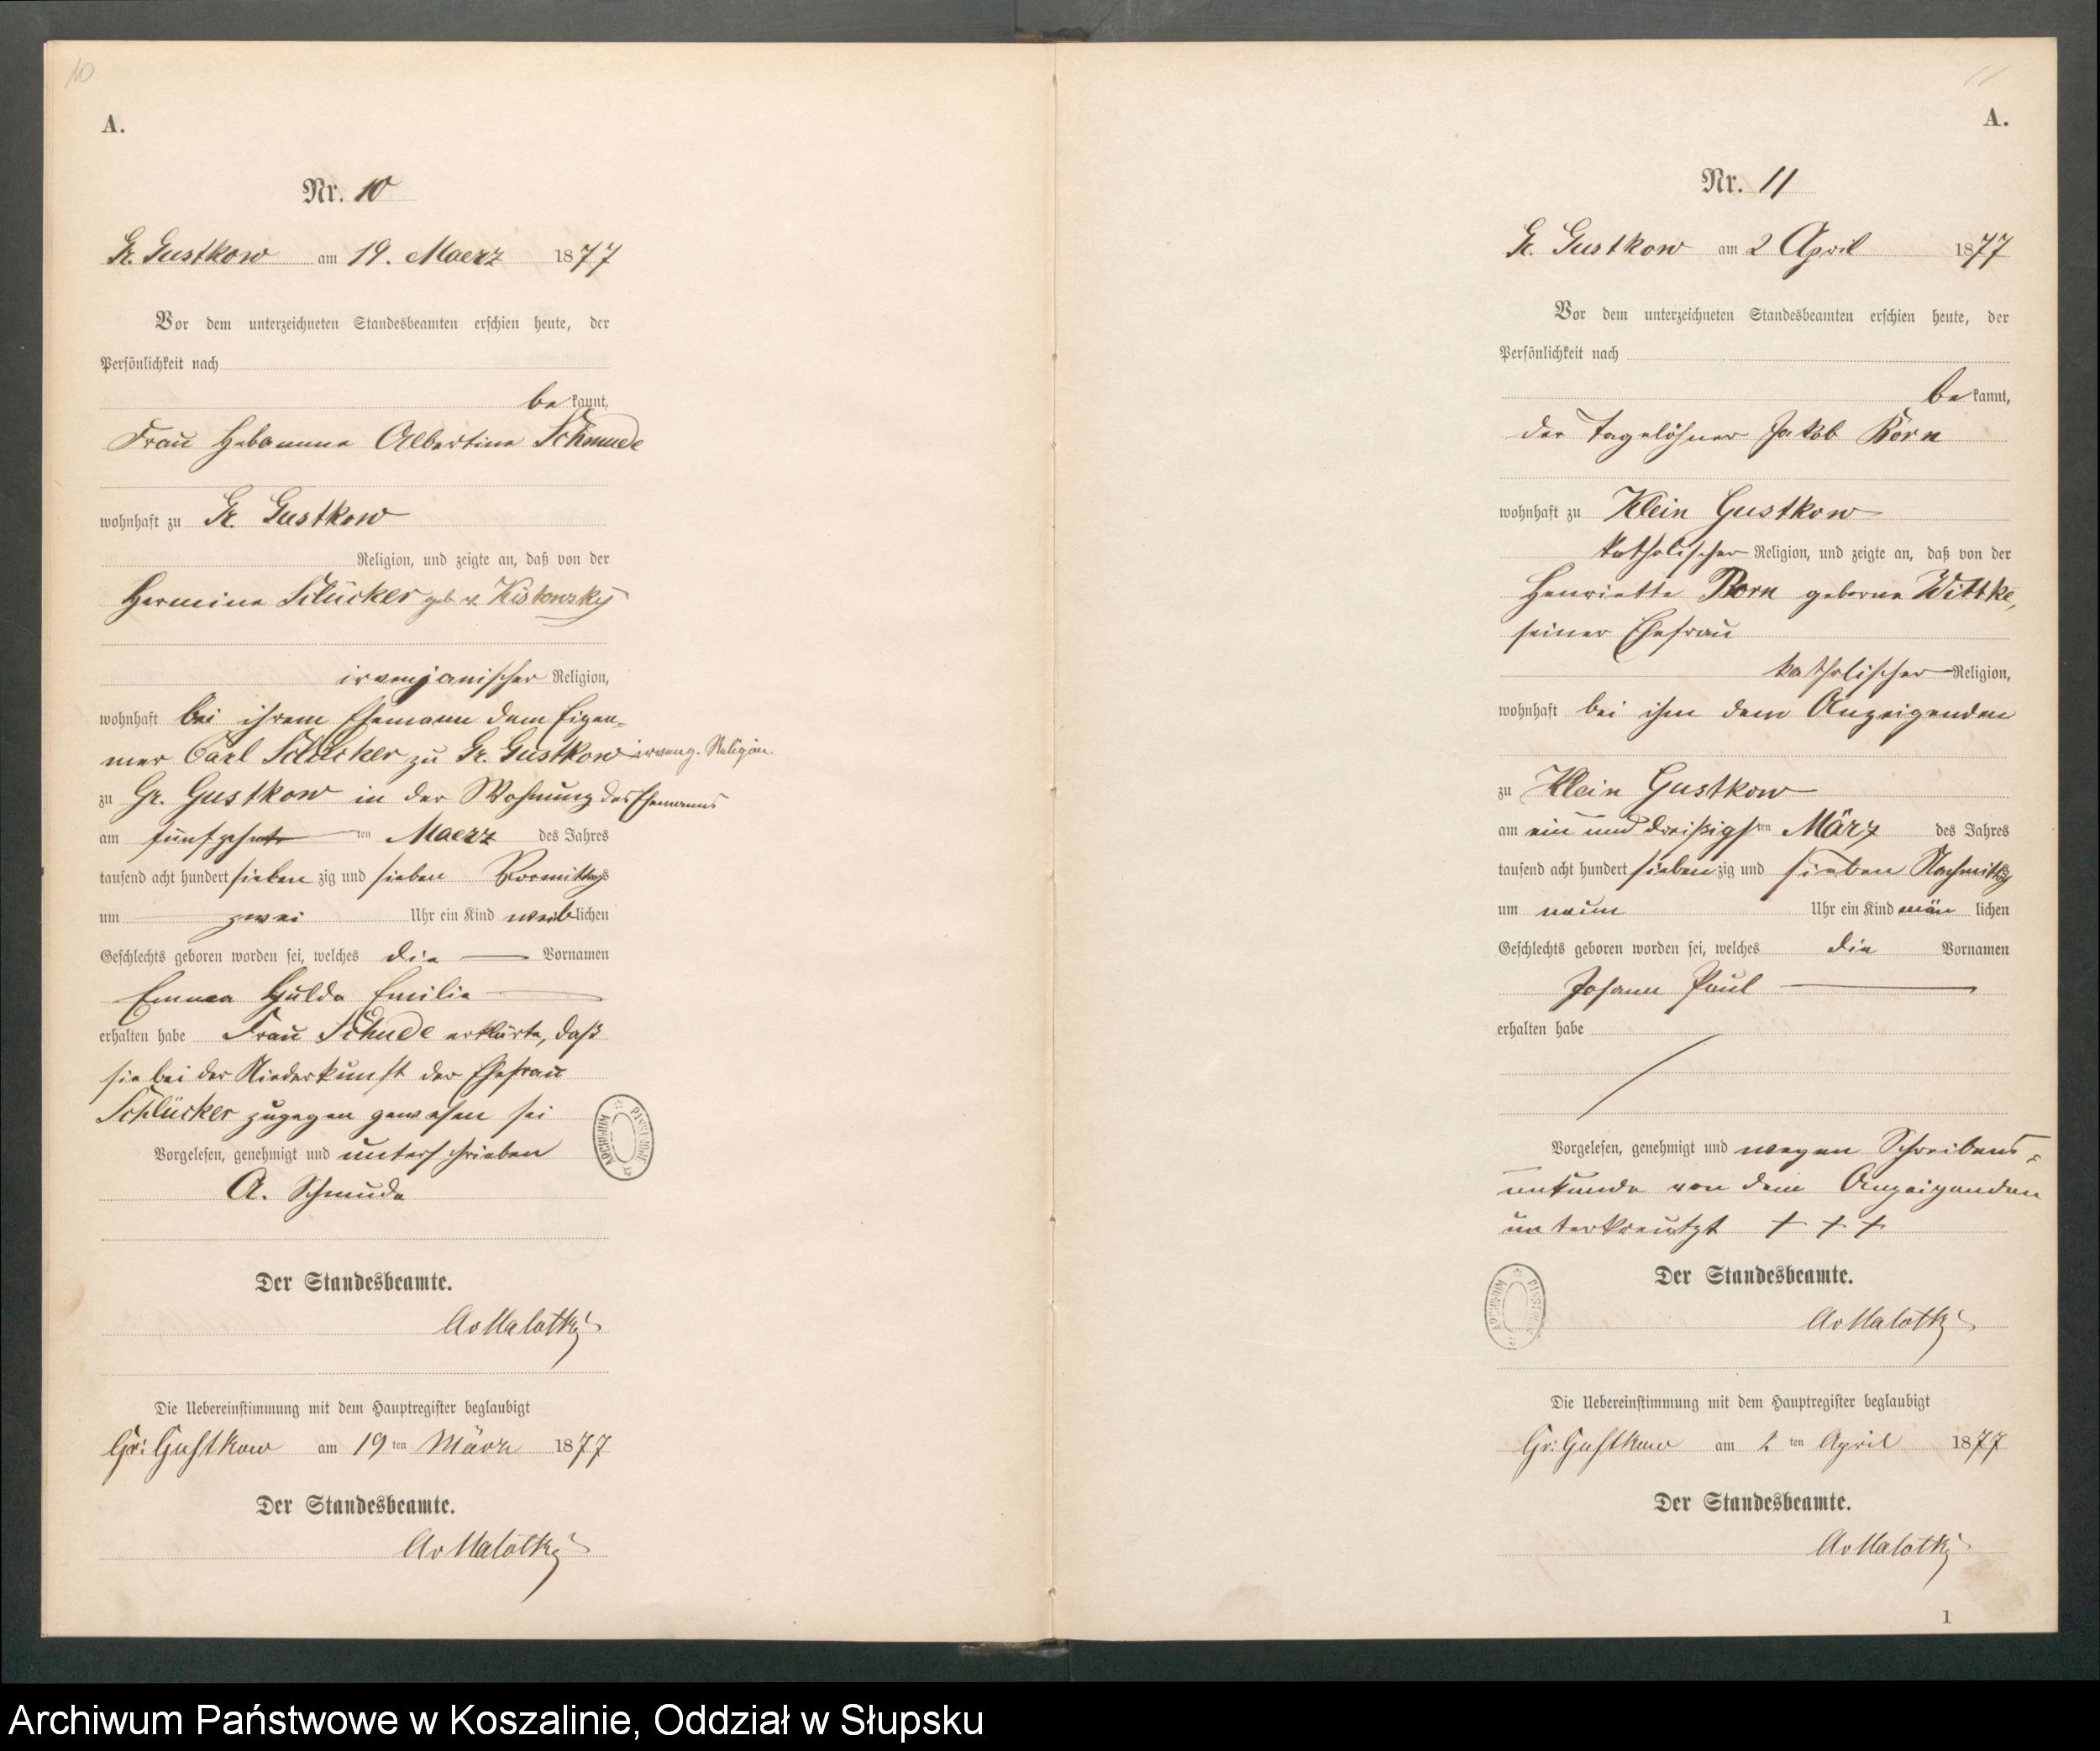 10
A.
Nr. 10
Gr. Gustkow am 19. Maerz 1877
Vor dem unterzeichneten Standesbeamten erschien heute, der
Persönlichkeit nach
be kannt,
Frau Hebamme Albertine Schmude
wohnhaft zu Gr Gustkow
Religion, und zeigte an, daß von der
Hermine Schlücker geb v. Kistowsky
irwenjanischer Religion,
wohnhaft bei ihrem Ehemann dem Eigen-
mer Carl Schlücker zu Gr. Gustkow irweng. Religion.
zu Gr. Gustkow in der Wohnung des Ehemanns
am fünfzehnt ten Maerz des Jahres
tausend acht hundert sieben zig und sieben Vormittags
um zwei Uhr ein Kind weib lichen
Geschlechts geboren worden sei, welches die Vornamen
Emma Hulda Emilie
erhalten habe Frau Schude erklärte, daß
sie bei der Niederkunft der Ehefrau
Schlücker zugegen gewesen sei
Vorgelesen, genehmigt und unterschrieben
A. Schmude
ARCHIWUM PAŃSTWOWE
Der Standesbeamte.
AvMalottky
Die Uebereinstimmung mit dem Hauptregister beglaubigt
Gr: Gustkow am 19 ten März 1877
Der Standesbeamte.
AvMalottky
11
A.
Nr. 11
Gr. Gustkow am 2 April 1877
Vor dem unterzeichneten Standesbeamten erschien heute, der
Persönlichkeit nach
be kannt,
der Tagelöhner Jakob Born
wohnhaft zu Klein Gustkow
katholischer Religion, und zeigte an, daß von der
Henriette Born geborne Wittke,
seiner Ehefrau
katholischer Religion,
wohnhaft bei ihm dem Anzeigenden
zu Klein Gustkow
am ein und dreißigs ten März des Jahres
tausend acht hundert sieben zig und sieben Nachmittg
um neun Uhr ein Kind män lichen
Geschlechts geboren worden sei, welches die Vornamen
Johann Paul
erhalten habe
Vorgelesen, genehmigt und wegen Schreibens-
unkunde von dem Anzeigenden
unterkreutzt + + +
ARCHIWUM PAŃSTWOWE
Der Standesbeamte.
AvMalottky
Die Uebereinstimmung mit dem Hauptregister beglaubigt
Gr: Gustkow am 2 ten April 1877
Der Standesbeamte.
AvMalottky
1
Archiwum Państwowe w Koszalinie, Oddział w Słupsku